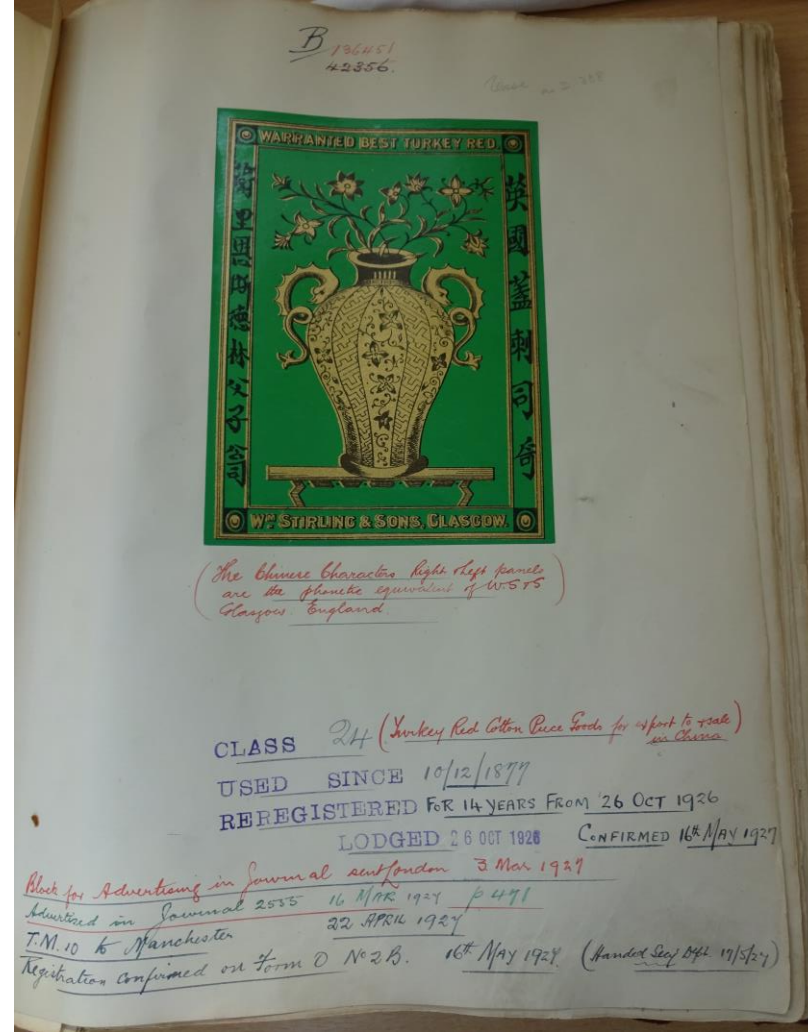 B 136451
42356.
Vase
WARRANTED BEST TURKEY RED.
英國蓋剌司哥
里恩師德林父子公司
WM STIRLING & SONS, GLASGOW.
(The Chinese Characters Right & Left panels
are the phonetic equivalent of W.S & S
Glasgow England.)
CLASS 24 (Turkey Red Cotton Piece Goods for export to & sale
in China)
USED SINCE 10/12/1877
REREGISTERED FOR 14 YEARS FROM 26 OCT 1926
LODGED 26 OCT 1926 CONFIRMED 16th MAY 1927
Block for Advertising in Journal sent London 3 Mar 1927
Advertised in Journal 2555 16 MAR 1927 p 471
T.M. 10 to Manchester 22 APRIL 1927
Registration confirmed on Form O No 2B. 16th MAY 1927. (Handed Secy Dept. 17/5/27)